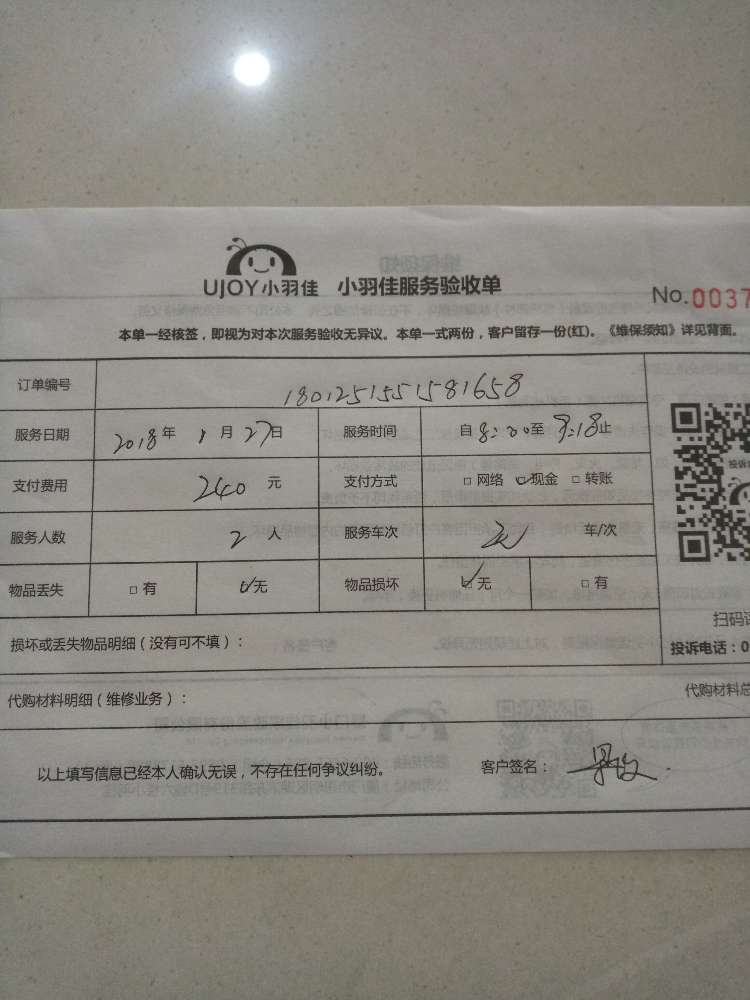 UJOY小羽佳 小羽佳服务验收单
No.0037
本单一经核签，即视为对本次服务验收无异议。本单一式两份，客户留存一份(红)。《维保须知》详见背面。
订单编号 1801251551581658
服务日期 2018年 1月 27日 服务时间 自8:00至 止
支付费用 240 元 支付方式 □网络 ☑现金 □转账
服务人数 2 人 服务车次 车/次
物品丢失 □有 ☑无 物品损坏 ☑无 □有
损坏或丢失物品明细（没有可不填）：
扫码
投诉电话：0
代购材料明细（维修业务）： 代购材料总
以上填写信息已经本人确认无误，不存在任何争议纠纷。 客户签名：